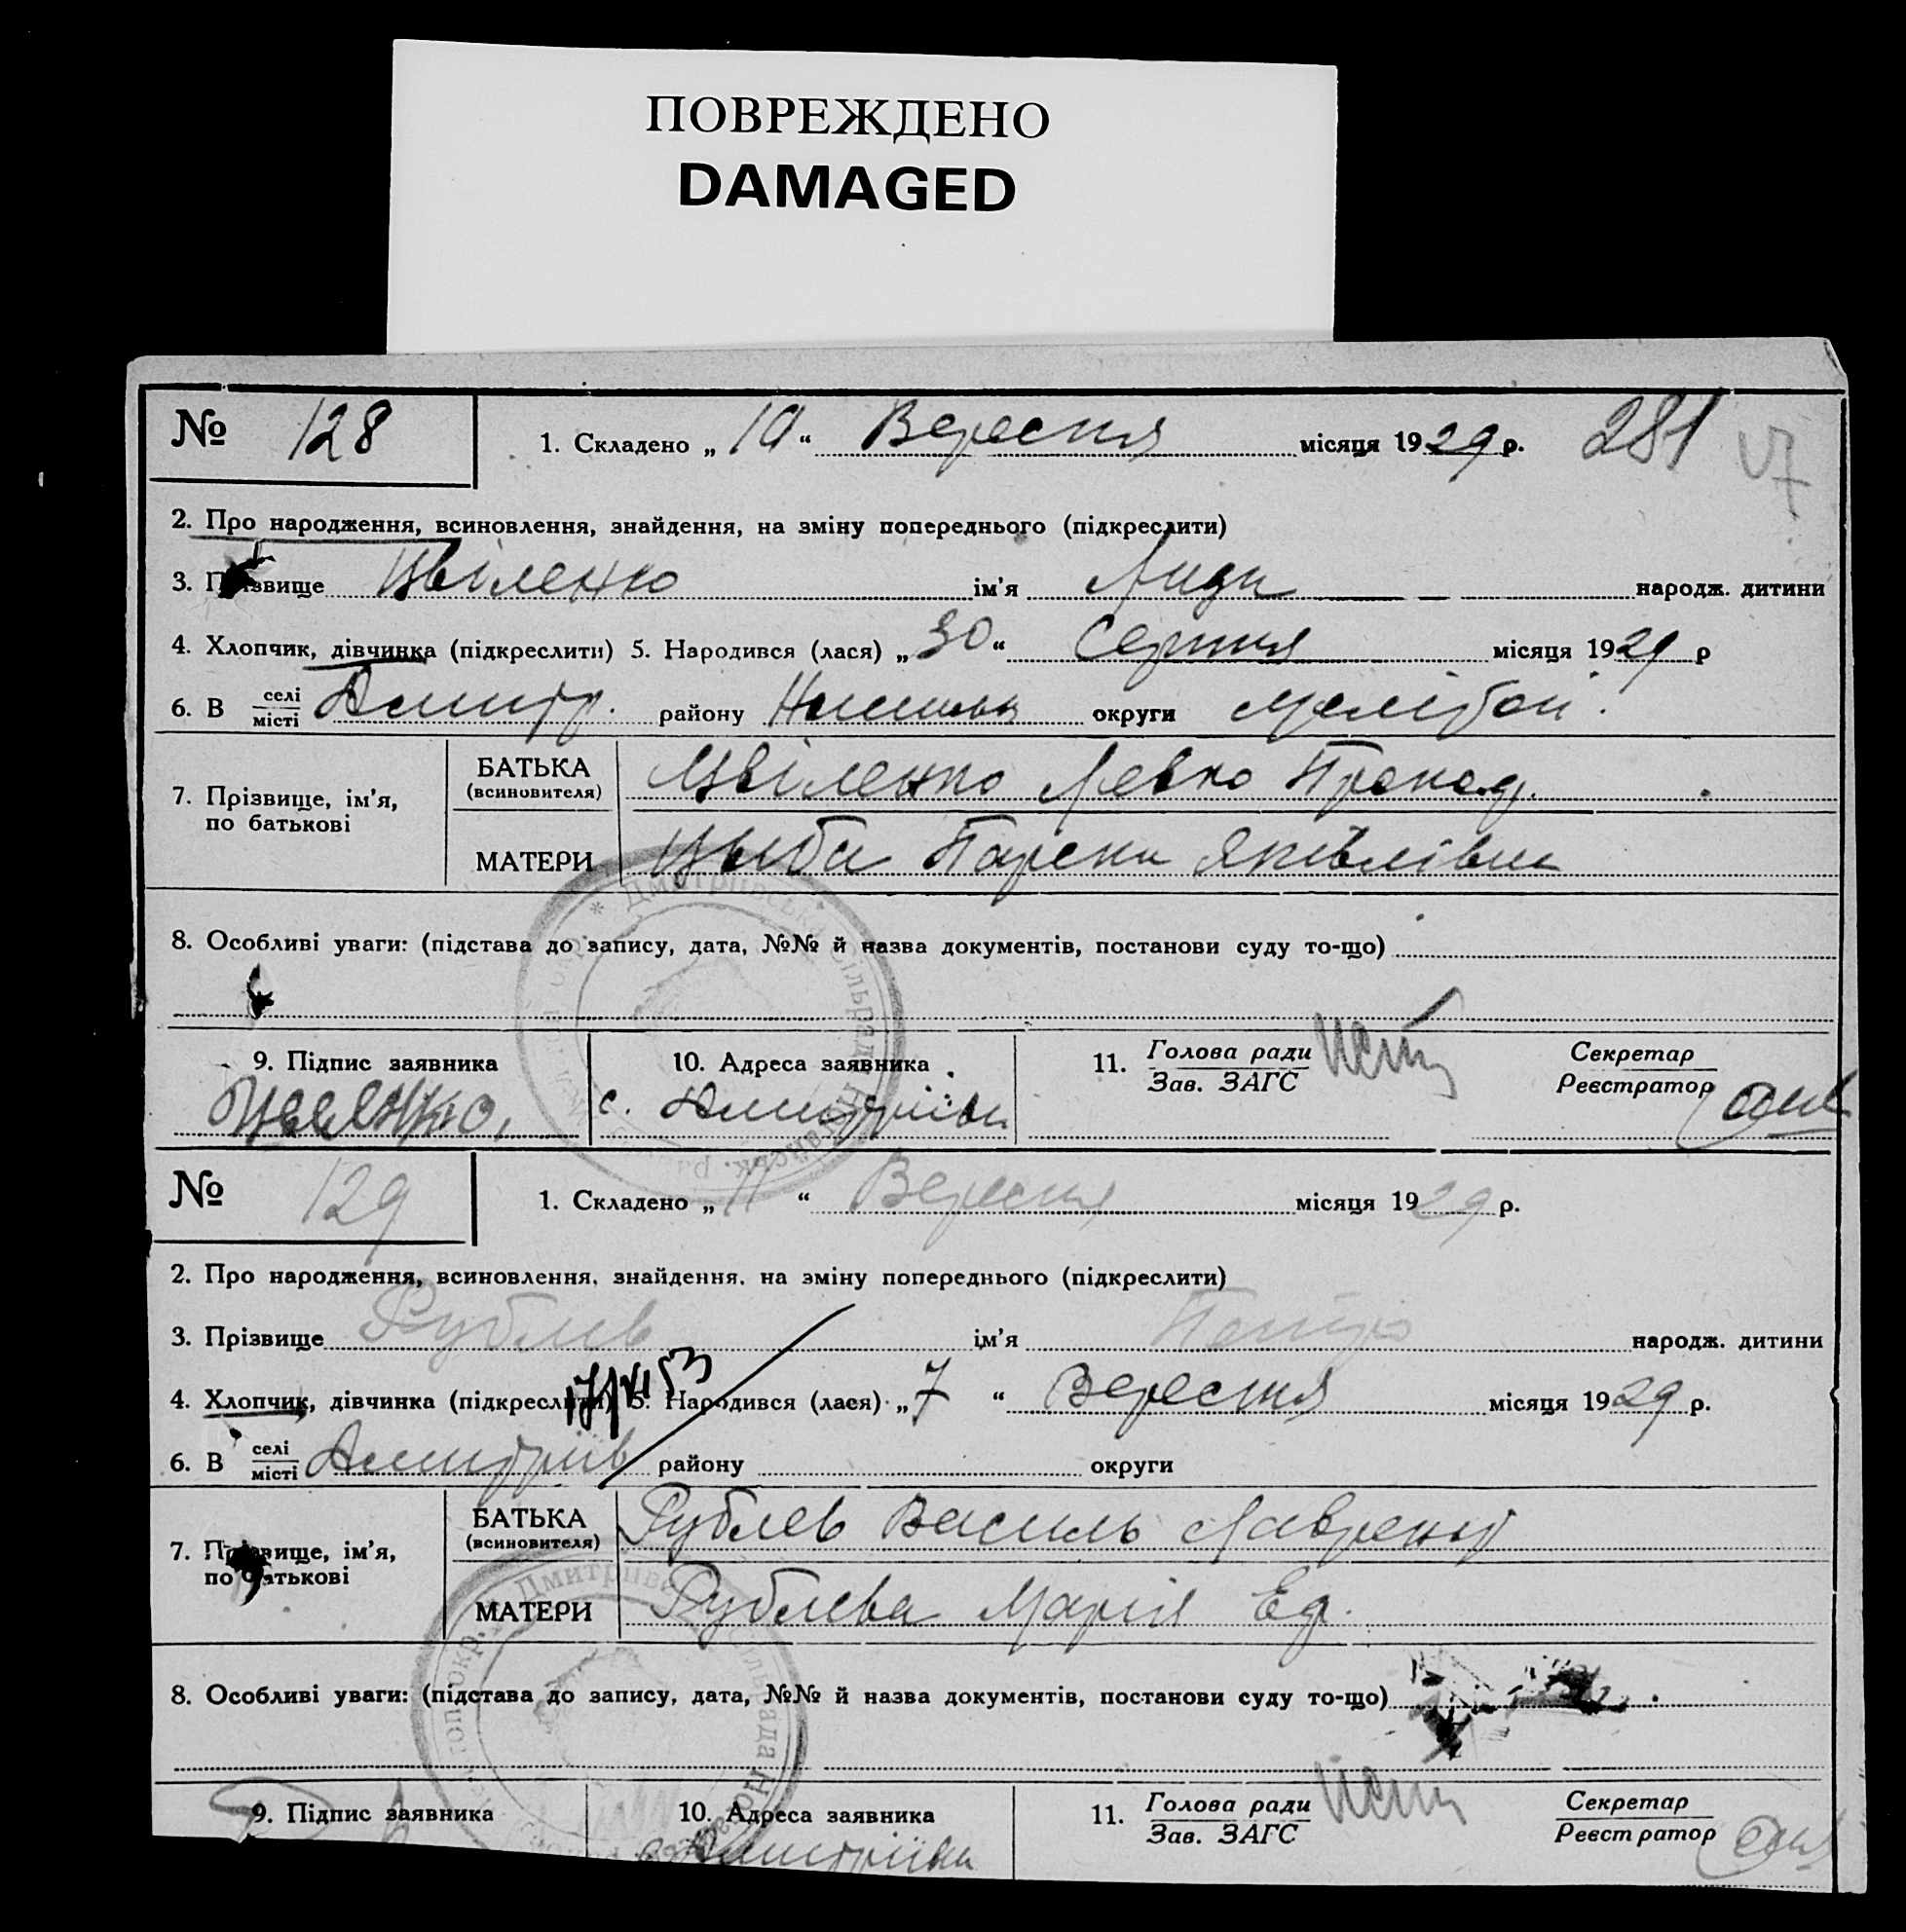 ПОВРЕЖДЕНО
DAMAGED
№ 128 1. Складено „10“ Вересня місяця 1929 р. 281
2. Про народження, всиновлення, знайдення, на зміну попереднього (підкреслити)
3. Прізвище Цвіленко ім'я Лиди народж. дитини
4. Хлопчик, дівчинка (підкреслити) 5. Народився (лася) „30“ Серпня місяця 1929 р
6. В селі місті Дмитр. району округи Меліток.
7. Прізвище, ім'я, по батькові БАТЬКА (всиновителя) Цвіленко Левко Прокоф.
МАТЕРИ Цыба Параска Яківлівна
8. Особливі уваги: (підстава до запису, дата, №№ й назва документів, постанови суду то-що)
9. Підпис заявника 10. Адреса заявника 11. Голова ради Зав. ЗАГС Секретар Реєстратор
с. Дмитріївка
№ 129 1. Складено „11“ Вересня місяця 1929 р.
2. Про народження, всиновлення, знайдення, на зміну попереднього (підкреслити)
3. Прізвище Рублев ім'я Петро народж. дитини
4. Хлопчик, дівчинка (підкреслити) 5. Народився (лася) „7“ Вересня місяця 1929 р.
6. В селі місті Дмитріїв району округи
7. Прізвище, ім'я, по батькові БАТЬКА (всиновителя) Рублев Василь Лаврент
МАТЕРИ Рублева Марія Ед.
8. Особливі уваги: (підстава до запису, дата, №№ й назва документів, постанови суду то-що)
9. Підпис заявника 10. Адреса заявника 11. Голова ради Зав. ЗАГС Секретар Реєстратор
Дмитріївка